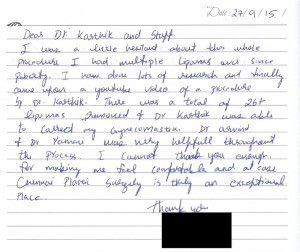 Date: 27/9/15
Dear Dr. Karthik and Staff
I was a little hesitant about this whole
procedure I had multiple lipomas ever since
puberty. I have done lots of research and finally
came upon a youtube video of a procedure
by Dr. Karthik. There was a total of 26+
lipomas removed & Dr Karthik was able
to correct my gynecomastia. Dr
& Dr Yamini was very helpfull throughout
the process. I cannot thank you enough
for making me feel comfortable and at ease
Chennai Plastic Surgery is truly an exceptional
place.
Thank you